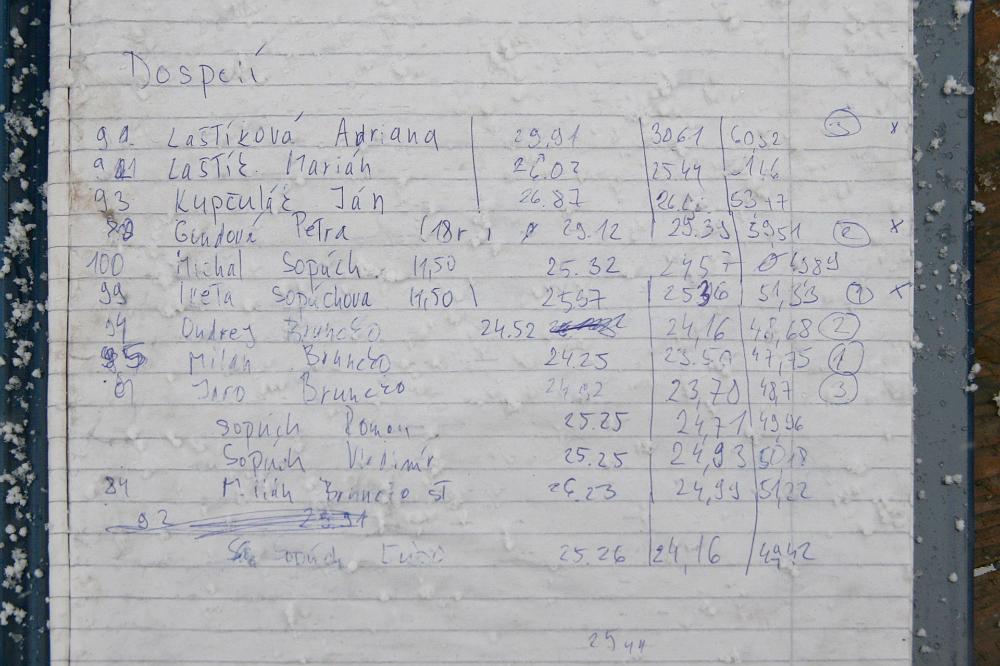 Dospelí
Laštíková Adriana 29,91 3061 60,52 3 x
Laštík Marián 26.03 25.44
93 Kupčulák Ján 26.87 53,47
Petra (18r.) 29.12 29.39 2 x
100 Michal Sopúch 11,50 25.32 24,57 4989
99 Iveta Sopúchova 11,50 2597 2536 51,33 1 x
94 Ondrej Brunčko 24.52 24,16 48,68 2
95 Milan Brunčko 24.25 23.50 47,75 1
Jaro Brunčko 23,70 48,7 3
Sopúch Roman 25.25 24,71 4996
Sopúch Vladimír 25.25 24,93 5018
84 Milan Brunčko st 26.23 24,99 51,22
92 2991
Sopúch 25.26 24,16 49,42
29